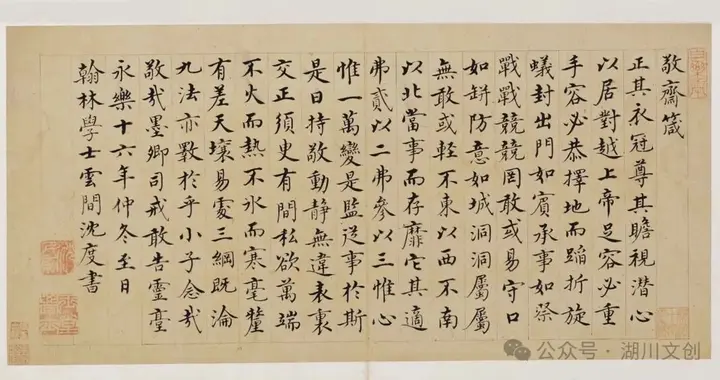 敬齋箴
正其衣冠尊其瞻視潛心
以居對越上帝足容必重
手容必恭擇地而蹈折旋
蟻封出門如賓承事如祭
戰戰兢兢罔敢或易守口
如缾防意如城洞洞屬屬
無敢或輕不東以西不南
以北當事而存靡它其適
弗貳以二弗參以三惟心
惟一萬變是監從事於斯
是曰持敬動靜無違表裏
交正須臾有間私欲萬端
不火而熱不氷而寒毫釐
有差天壤易處三綱既淪
九法亦斁於乎小子念哉
敬哉墨卿司戒敢告靈臺
永樂十六年仲冬至日
翰林學士雲間沈度書
公众号·湖川文创